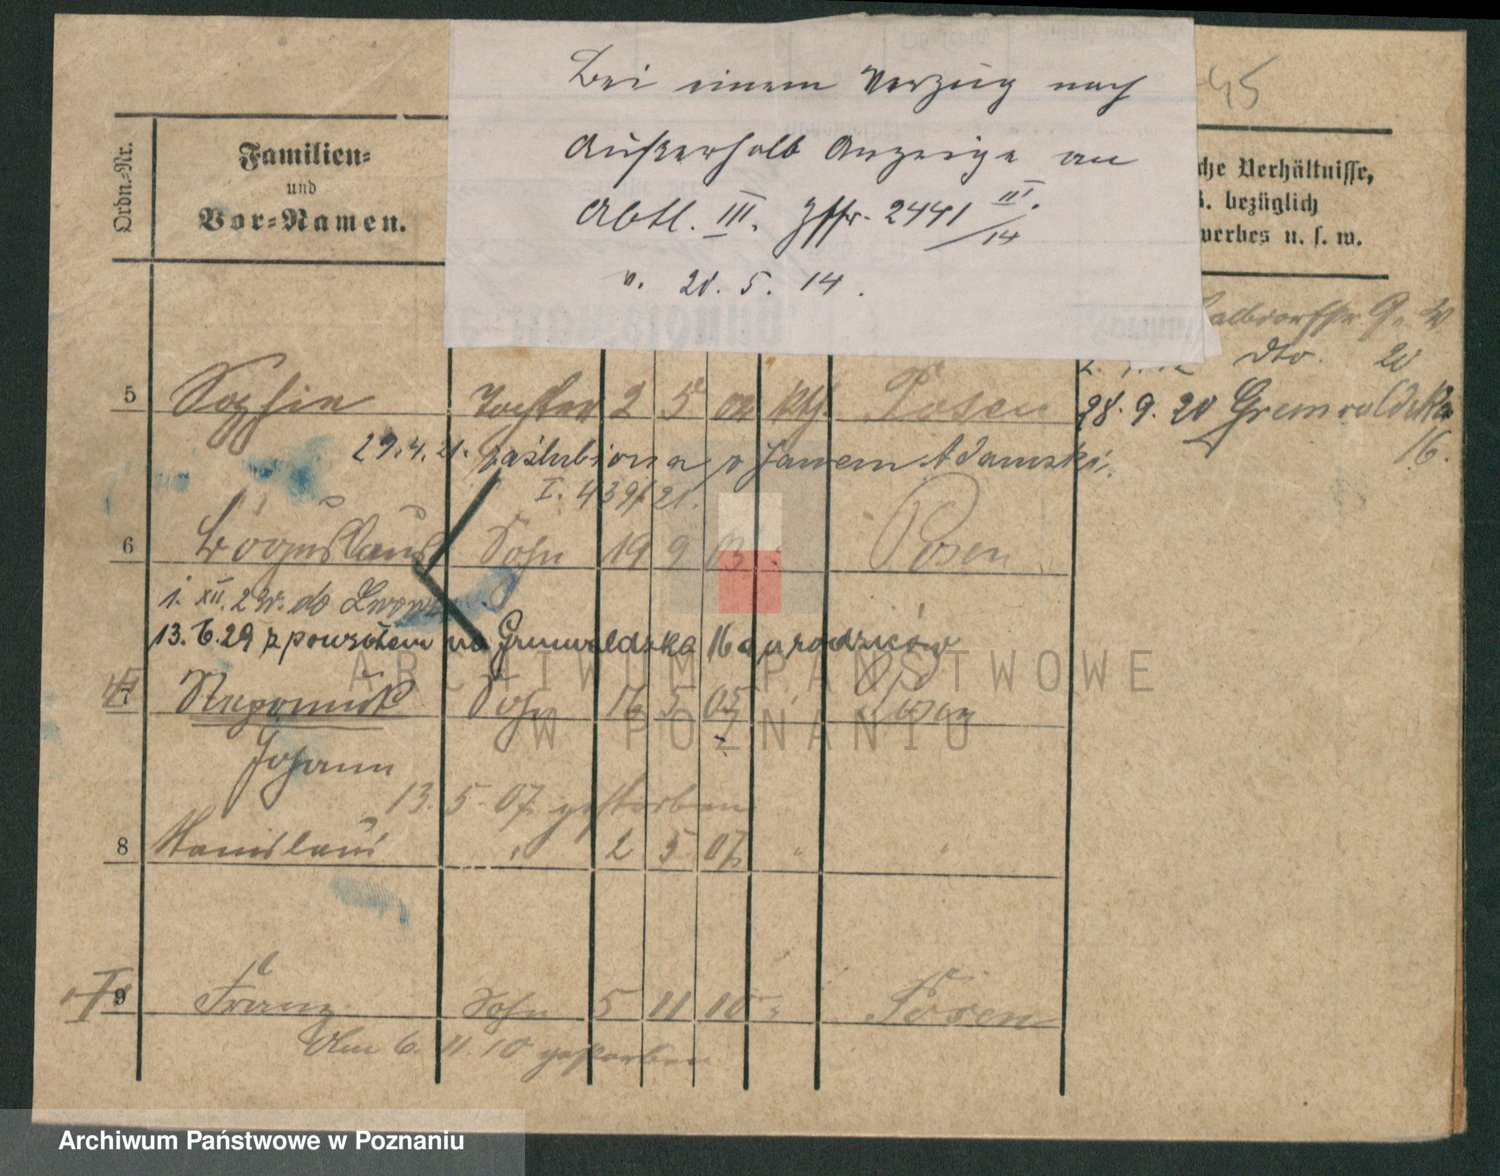 Bei einem Verzug nach
Außerhalb Anzeige an
Abtl. III. 2441 II./14
v. 20. 5. 14.
45
Ordn.-Nr.
Familien-
und
Vor-Namen.
che Verhältnisse,
. bezüglich
werbes u. s. w.
G. W
dto. 20
5 Sophie Tochter 2 5 02 kth. Posen 28. 9. 20 Grunwaldzka
16.
29.4.21. zaślubiona z Janem Adamski.
I. 439/21.
6 Boguslaus Sohn 19 9 03 Posen
1. XII. 2 do Lwowa
13. 6. 29 z powrotem na Grunwaldzka 16 a u rodziców
7 Nepomuk Sohn 16 5 05 Posen
Johann
13. 5. 07 gestorben
8 Stanislaus " 2 5 07 " "
9 Franz Sohn 5 11 10 Posen
Am 6. 11. 10 gestorben
ARCHIWUM PAŃSTWOWE
W POZNANIU
Archiwum Państwowe w Poznaniu